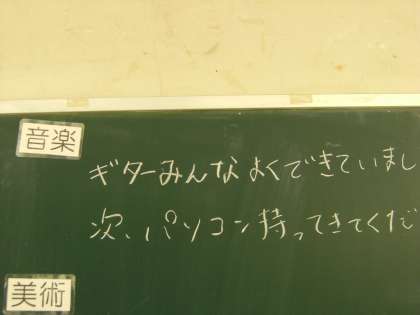 音楽
ギターみんなよくできていまし
次、パソコン持ってきてくだ
美術